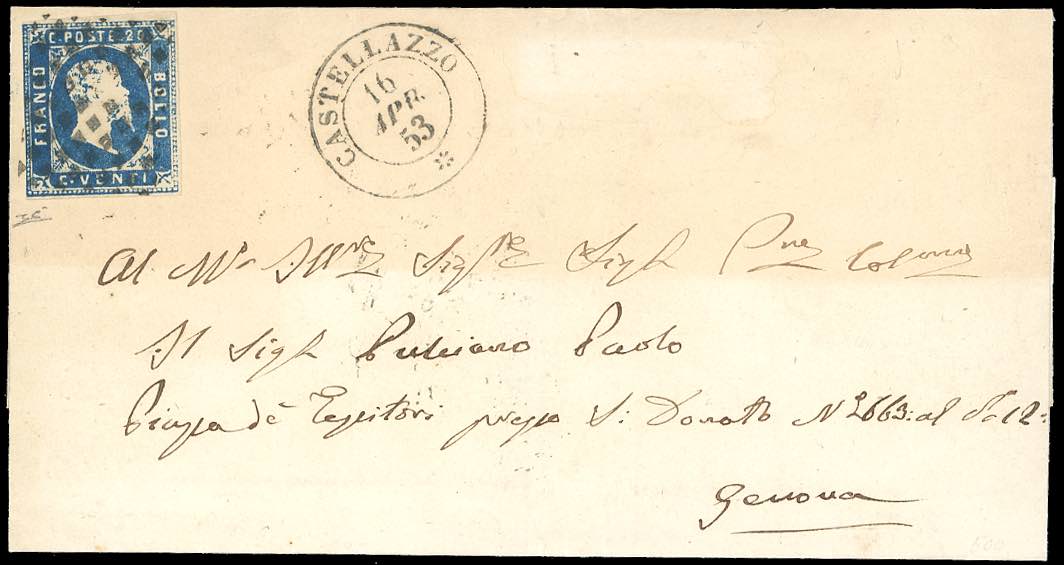 C. POSTE 20
FRANCO
BOLLO
C. VENTI
CASTELLAZZO
16
APR.
53
Al Mto Illre Sigre Sigr Pne Colonna
Il Sigr Pulciano Paolo
Piazza de Tessitori presso S: Donato No 2663: al Po 12:
Genova
500